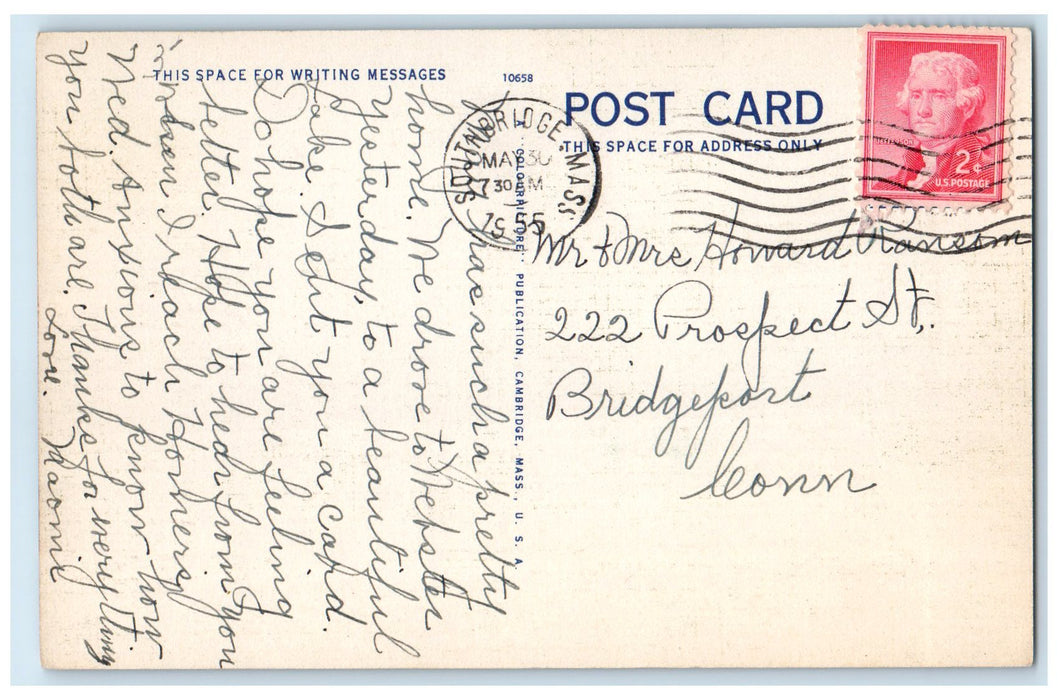 THIS SPACE FOR WRITING MESSAGES
10658
POST CARD
THIS SPACE FOR ADDRESS ONLY
SOUTHBRIDGE, MASS
MAY 30
7 30 AM
1955
2¢
U.S. POSTAGE
has such a pretty
home. We drove to Webster
yesterday, to a beautiful
lake. Sent you a card.
Do hope you are feeling
better. Hope to hear from you
when I reach
Wed. Anxious to know how
you both are. Thanks for everything
Love. Naomi
PUBLICATION, CAMBRIDGE, MASS., U. S. A.
Mr & Mrs Howard Ransom
222 Prospect St.
Bridgeport
Conn